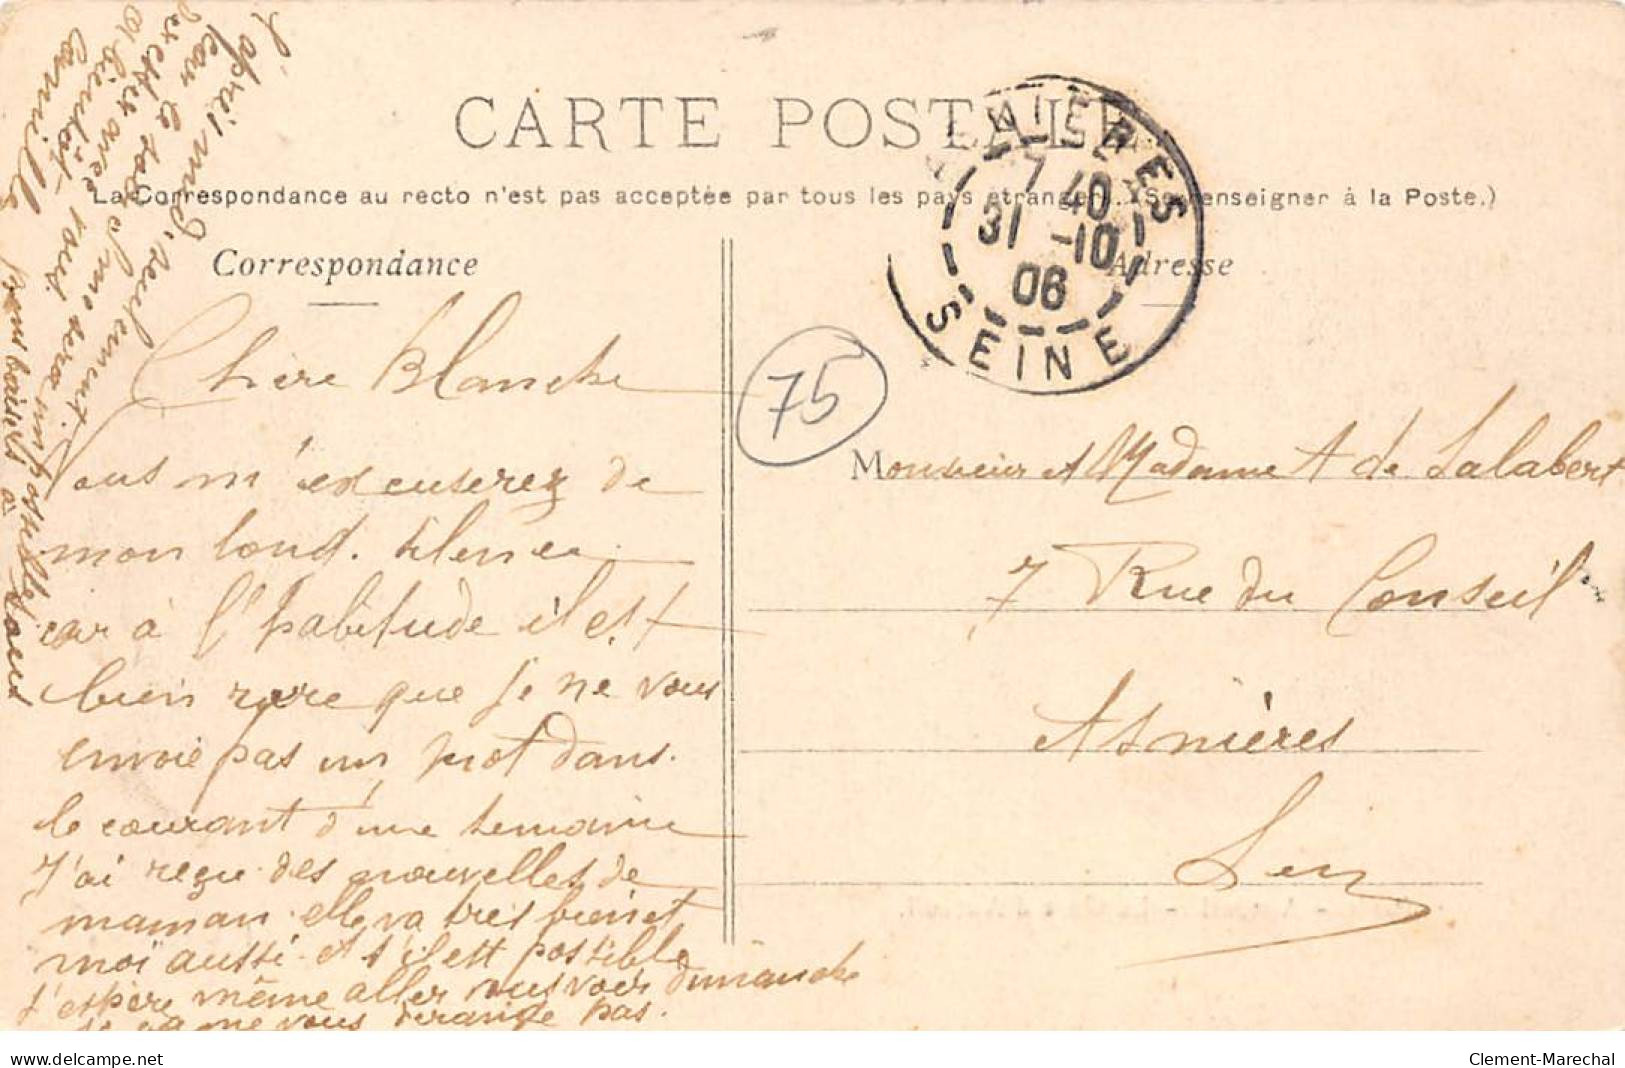 CARTE POSTALE
La Correspondance au recto n'est pas acceptée par tous les pays étrangers. (Se renseigner à la Poste.)
Correspondance
Adresse
ASNIERES
7 40
31 -10
06
SEINE
75
Chère Blanche
Vous m'excuserez de
mon long silence
car à l'habitude il est
bien rare que je ne vous
envoie pas un mot dans
le courant d'une semaine
J'ai reçu des nouvelles de
maman elle va très bien et
moi aussi. et s'il est possible
j'espère même aller vous voir dimanche
si ça ne vous dérange pas.
l'après midi seulement
car le
avec vous me sera impossible
A bientôt
Camille bons baisers à tous
Monsieur et Madame A de Lalabert
7 Rue du Conseil
Asnières
Seine
delcampe.net
Clement-Marechal